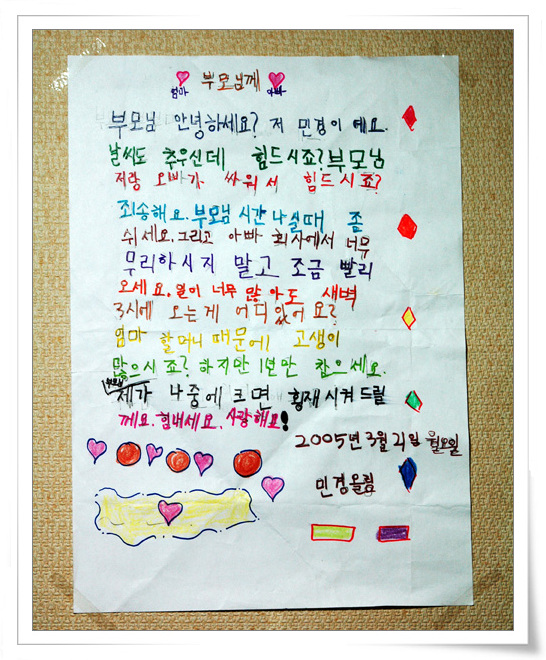 부모님께
엄마 아빠
부모님 안녕하세요? 저 민경이예요.
날씨도 추우신데 힘드시죠? 부모님
저랑 오빠가 싸워서 힘드시죠?
죄송해요. 부모님 시간 나실때 좀
쉬세요. 그리고 아빠 회사에서 너무
무리하시지 말고 조금 빨리
오세요. 일이 너무 많아도 새벽
3시에 오는게 어디있어요?
엄마 할머니 때문에 고생이
많으시죠? 하지만 1년만 참으세요.
제가 나중에 크면 횡재시켜 드릴
께요. 힘내세요. 사랑해요!
2005년 3월 21일 월요일
민경올림